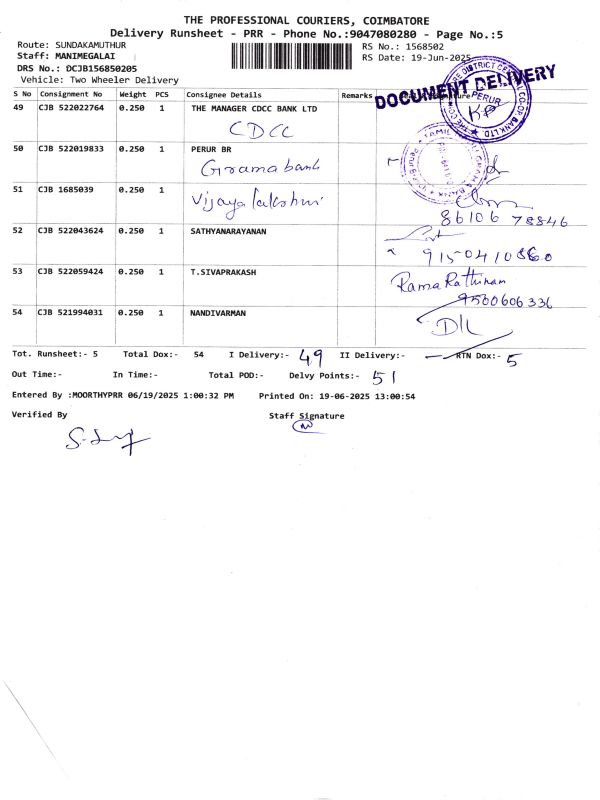 THE PROFESSIONAL COURIERS, COIMBATORE
Delivery Runsheet - PRR - Phone No.:9047080280 - Page No.:5
Route: SUNDAKAMUTHUR
RS No.: 1568502
Staff: MANIMEGALAI
RS Date: 19-Jun-2025
DRS No.: DCJB156850205
Vehicle: Two Wheeler Delivery
DOCUMENT DELIVERY
S No Consignment No Weight PCS Consignee Details Remarks
PERUR
49 CJB 522022764 0.250 1 THE MANAGER CDCC BANK LTD
CDCC
50 CJB 522019833 0.250 1 PERUR BR
Grama bank
51 CJB 1685039 0.250 1
Vijaya lakshmi
86106 78846
52 CJB 522043624 0.250 1 SATHYANARAYANAN
9150410860
53 CJB 522059424 0.250 1 T.SIVAPRAKASH
Rama Rathinam
9500606336
54 CJB 521994031 0.250 1 NANDIVARMAN
Tot. Runsheet:- 5 Total Dox:- 54 I Delivery:- 49 II Delivery:- — RTN Dox:- 5
Out Time:- In Time:- Total POD:- Delvy Points:- 51
Entered By :MOORTHYPRR 06/19/2025 1:00:32 PM Printed On: 19-06-2025 13:00:54
Verified By Staff Signature